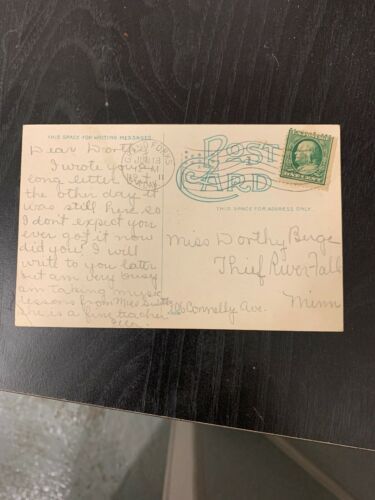 THIS SPACE FOR WRITING MESSAGES
Dear Dorthy
I wrote you a
long letter but
the other day it
was still here so
I don't expect you
ever got it now
did you? I will
write to you later
but am very busy
am taking music
lessons from Miss
she is a fine teacher
POST
CARD
THIS SPACE FOR ADDRESS ONLY.
Miss Dorthy Berge
Thief River Fall
Connelly Ave.
Minn